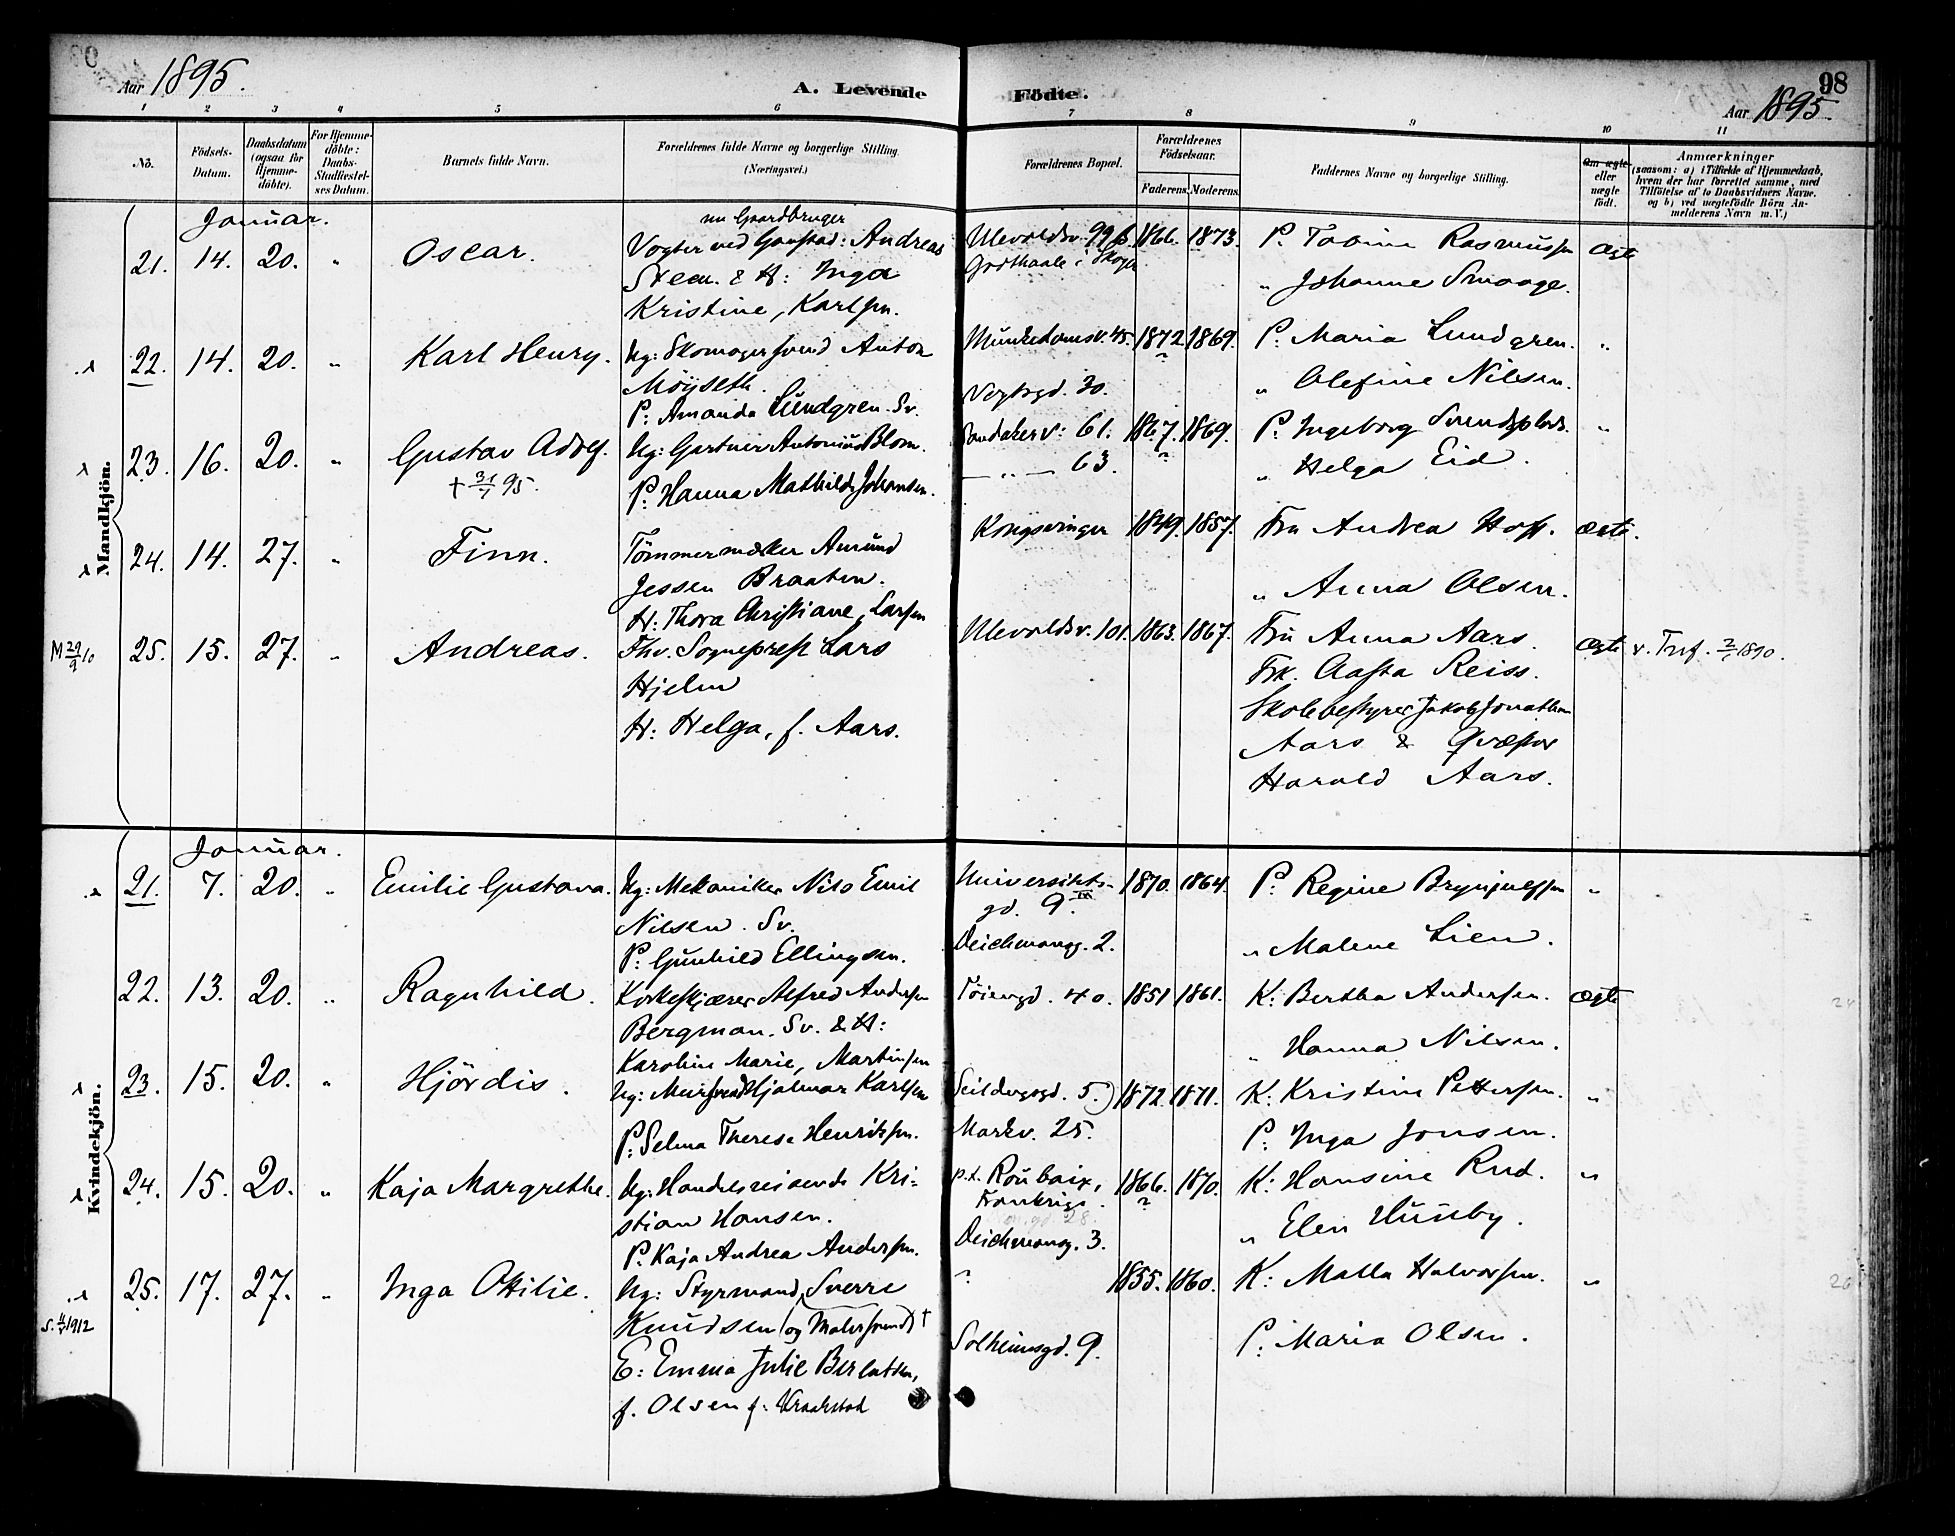 Aar 1895.
A. Levende Födte.
98
Aar 1895
1 2 3 4 5 6 7 8 9 10 11
No. Födsels-Datum. Daabsdatum (ogsaa for Hjemme-döbte). For Hjemme-döbte: Daabs-Stadfæstel-ses Datum. Barnets fulde Navn. Forældrenes fulde Navne og borgerlige Stilling. (Næringsvei.) Forældrenes Bopæl. Forældrenes Födselsaar. Faderens. Moderens. Faddernes Navne og borgerlige Stilling. Om ægte eller uægte födt. Anmærkninger
(saasom: a) i Tilfælde af Hjemmedaab, hvem der har forrettet samme, med Tilföielse af to Daabsvidners Navne. og b) ved uægtefödte Börn An-melderens Navn m. V.)
Mandkjön.
Januar.
nu Gaardbruger
21. 14. 20. " Oscar. Vogter ved Gaustad: Andreas Ulevoldsv. 99 b. 1866. 1873. P. Tobine Rasmussen Ægte
Steen. & H: Inga Godthaab i Skoger " Johanne Smaage.
Kristine, Karlsen.
22. 14. 20. " Karl Henry. Ug: Skomagersvend Anton Munkedamsv. 45. 1872 1869. P. Maria Lundgren. "
Möyseth. Vogtsgd. 30. " Olefine Nilsen.
P: Amanda Lundgren. Sv.
23. 16. 20. " Gustav Adolf. Ug: Gartner Antonius Blom. Sandakerv: 61. 1867. 1869. P. Ingeborg "
+ 31/1 95. P: Hanna Mathilde Johansen. — " — 63. " Helga Eid.
24. 14. 27. " Finn. Tömmermækler Amund Kongsvinger 1849. 1857. Fru Andrea Hoff. ægte.
Jessen Braaten. " Anna Olsen.
H: Thora Christiane, Larsen
M 29/9 10 25. 15. 27. " Andreas. Fhv. Sogneprest Lars Ulevoldsv. 101. 1863. 1867. Fru Anna Aars. Ægte v. Trf. 2/1 1890.
Hjelm Frk. Aasta Reiss.
H: Helga, f. Aars. Skolebestyrer Jakob Jonathan
Aars &
Harald Aars.
Kvindekjön.
Januar.
21. 7. 20. " Emilie Gustava. Ug: Mekaniker Nils Emil Universitets- 1870. 1864. P: Regine Brynjulfsen "
Nilsen. Sv. gd. 9. IV " Malene Lien.
P: Gunhild Ellingsen. Deichmansg. 2.
22. 13. 20. " Ragnhild. Korkeskjærer Alfred Andersen Töiengd. 40. 1851 1861. K: Bertha Andersen. Ægte
Bergman. Sv. & H: " Hanna Nilsen.
Karoline Marie, Martinsen
23. 15. 20. " Hjördis. Ug: Mursvend Hjalmar Karlsen Seildugsgd. 5. 1872. 1871. K: Kristine Pettersen. "
P: Selma Therese Henriksen. Markv. 25. P: Inga Jonsen.
24. 15. 20. " Kaja Margrethe. Ug: Handelsreisende Kri- p.t. Roubaix, 1866. 1870. K: Hansine Rud. "
stian Hansen. Frankrige. " Elen Huuby.
P. Kaja Andrea Andersen. Deichmansg. 3.
25. 17. 27. " Inga Otilie. Ug: Styrmand, Sverre ? 1855. 1860. K: Malla Halvorsen. "
Knudsen (og Malersvend) †
E: Emma Julie Berlatten, Solheimsgd. 9. P: Maria Olsen.
f. Olsen f: Kraakstad